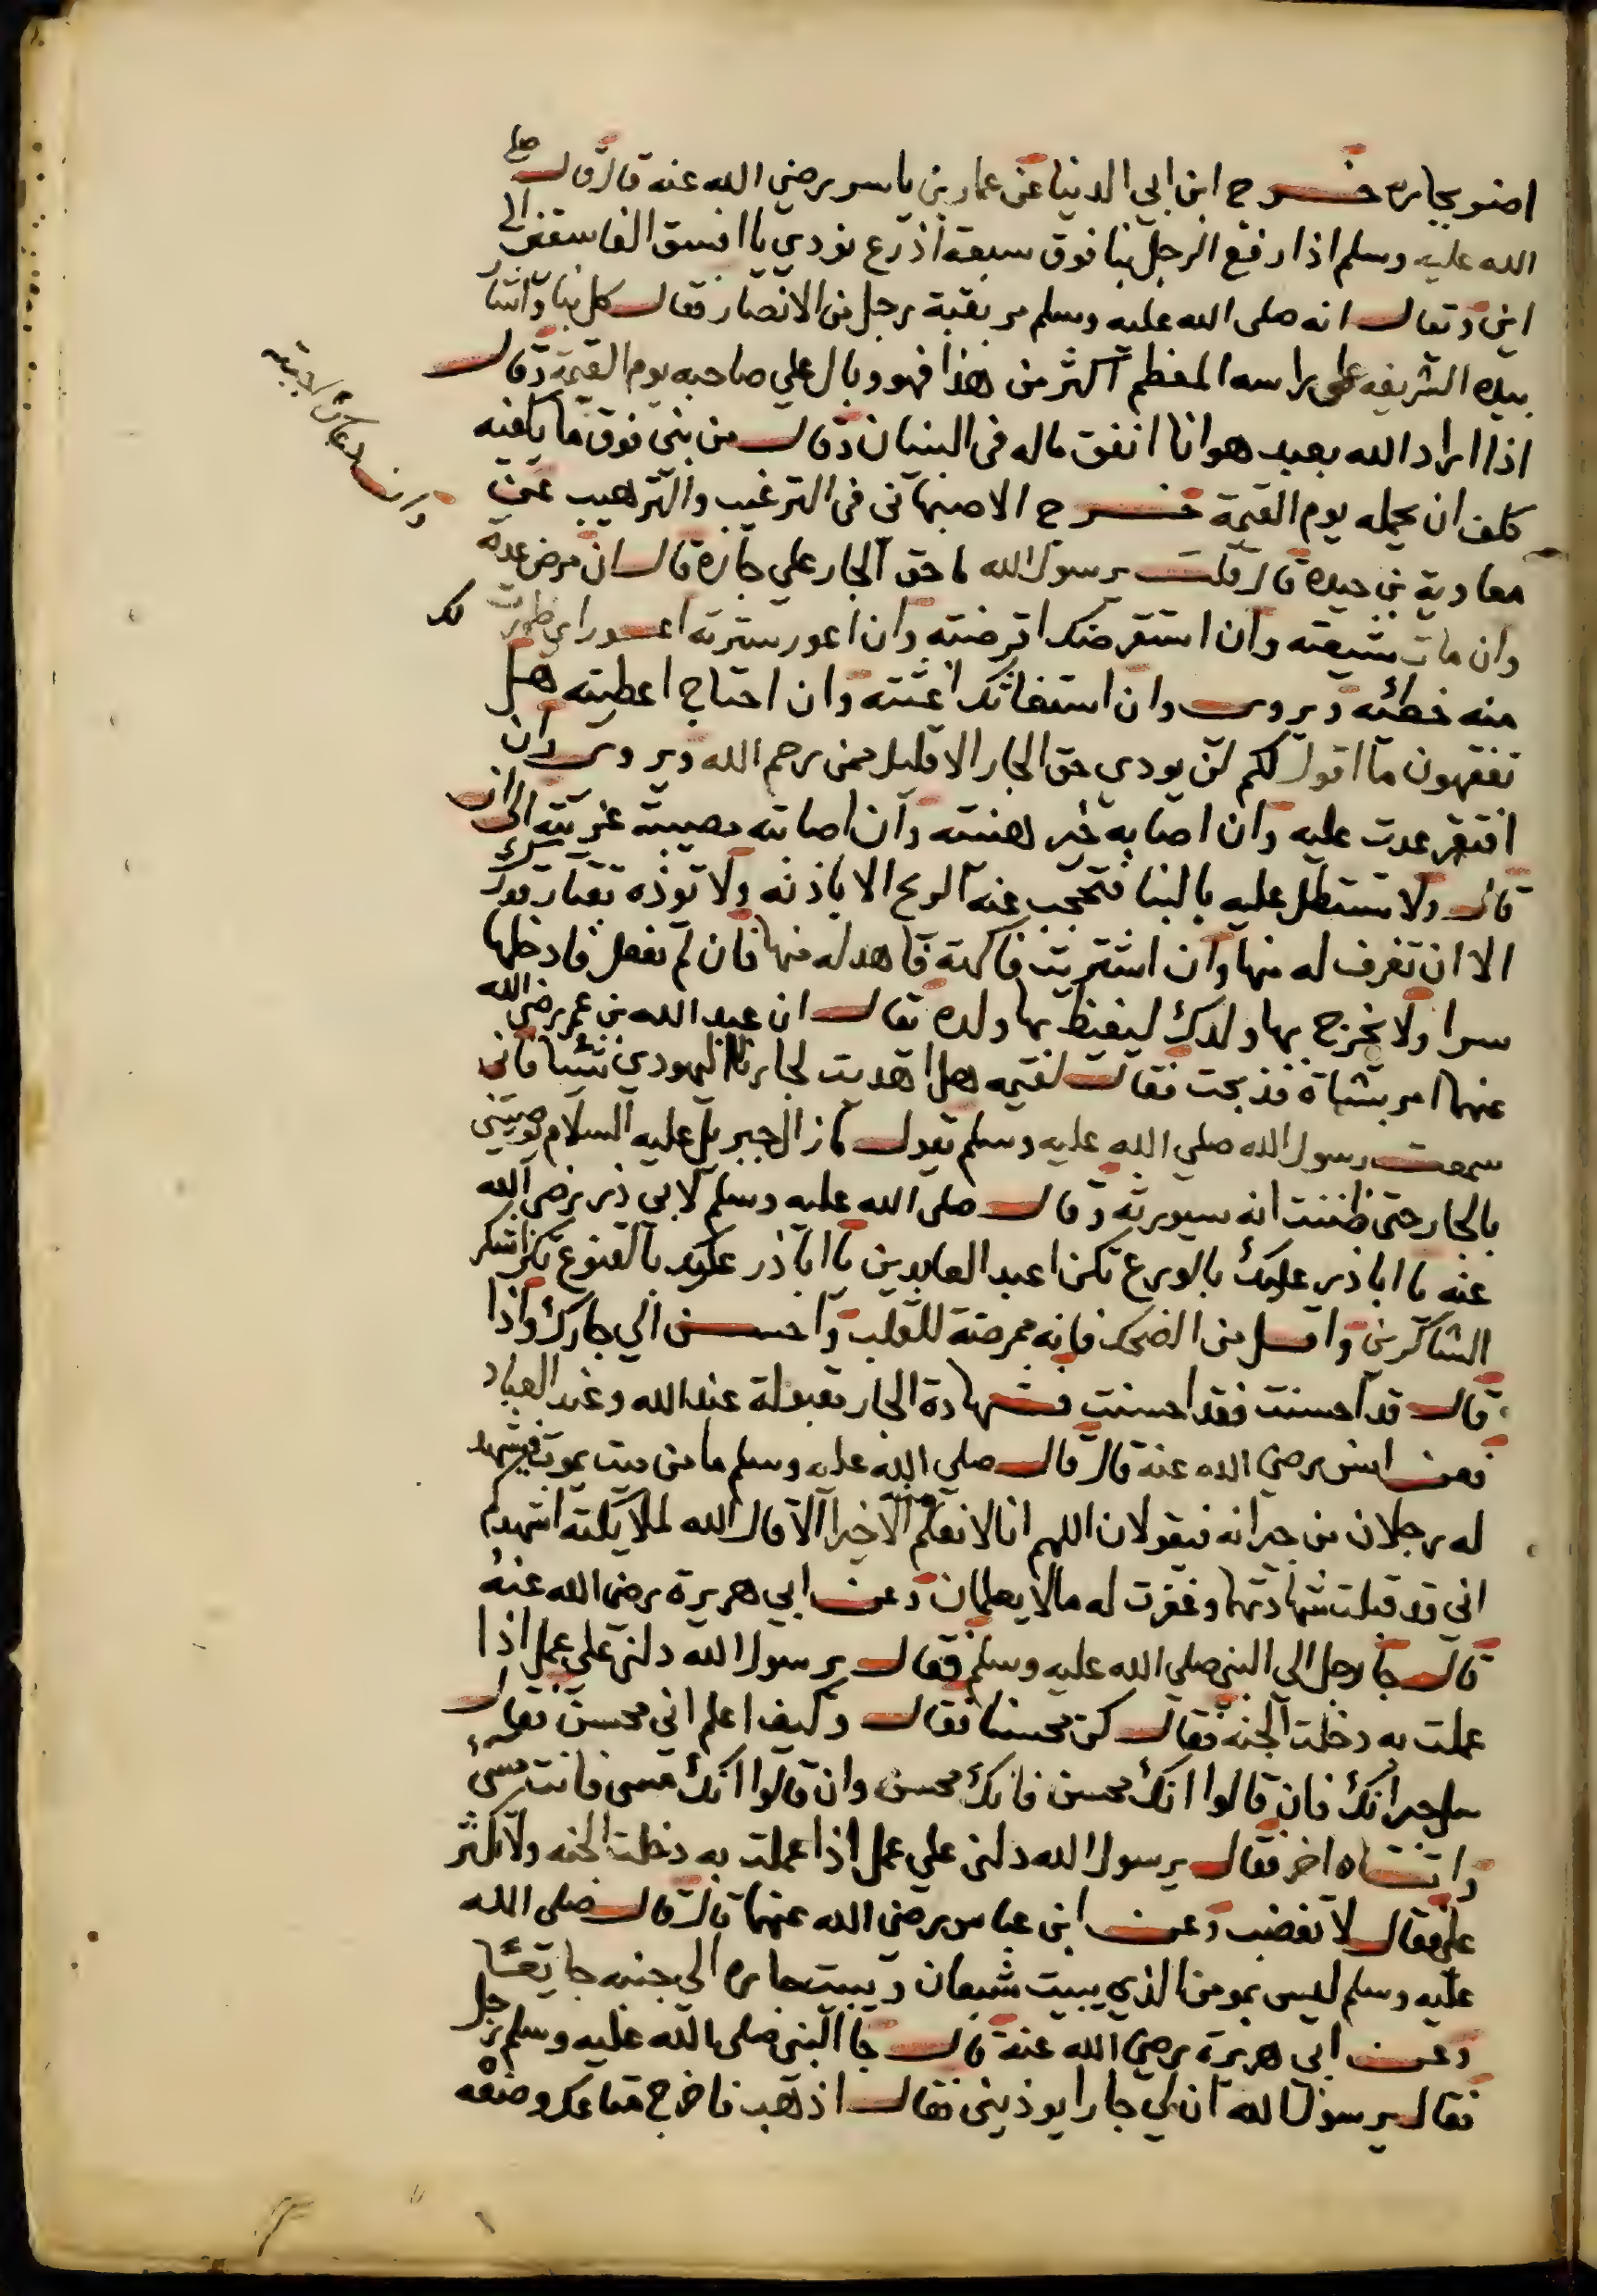 اضر بجاره خرج ابن ابي الدنيا عن عمار بن ياسر رضي الله عنه قال قال صلى
الله عليه وسلم اذا رفع الرجل بنا فوق سبعة اذرع نودي يا افسق الفاسقين الى
اين وتعال انه صلى الله عليه وسلم مر بقبة رجل من الانصار فقال كل بنا واشار
بيده الشريفه على راسه المعظم اكثر من هذا فهو وبال علي صاحبه يوم القيمة وقال
اذا اراد الله بعبد هوانا انفق ماله في البنيان وقال من بنى فوق ما يكفيه
كلف ان يحمله يوم القيمة خرج الاصبهاني في الترغيب والترهيب عن
معاوية بن حيده قال قلت يرسول الله ما حق الجار علي جاره قال ان مرض عدته
وان مات شيعته وان استقرضك اقرضته وان اعور سترته اعور اي ظهرت لك
منه خطئه ويروى وان استغاثك اغثته وان احتاج اعطيته هل
تفقهون ما اقول لكم لن يودي حق الجار الا قليل ممن رحم الله ويروى وان
افتقر عدت عليه وان اصابه خير هنئته وان اصابته مصيبة عزيته الى ان
قال ولا تستطل عليه بالبنا فتحجب عنه الريح الا باذنه ولا توذه بقتار قدرك
الا ان تغرف له منها وان اشتريت فاكهة فاهد له منها فان لم تفعل فادخلها
سرا ولا يخرج بها ولدك ليغيظ بها ولده يقال ان عبد الله بن عمر رضي الله
عنهما امر بشاة فذبحت فقال لقيمه هل اهديت لجارنا اليهودي شيا فاني
سمعت رسول الله صلي الله عليه وسلم يقول ما زال جبريل عليه السلام يوصيني
بالجار حتى ظننت انه سيورثه وقال صلى الله عليه وسلم لابي ذر رضي الله
عنه يا اباذر عليك بالورع تكن اعبد العابدين يا اباذر عليك بالقنوع تكن اشكر
الشاكرين واقل من الضحك فانه ممرضة للقلب واحسن الي جارك واذا
قال قد احسنت فقد احسنت فشهادة الجار مقبولة عند الله وعند العباد
فعن انس رضي الله عنه قال قال صلى الله عليه وسلم ما من ميت يموت فيشهد
له رجلان من جيرانه فيقولان اللهم انا لا نعلم الا خيرا الا قال الله لملايكته اشهدكم
اني قد قبلت شهادتهما وغفرت له مالا يعلمان وعن ابي هريرة رضي الله عنه
قال جا رجل الى النبي صلي الله عليه وسلم فقال يرسول الله دلني علي عمل اذا
عملت به دخلت الجنه فقال كن محسنا فقال وكيف اعلم اني محسن فقال
سل جيرانك فان قالوا انك محسن فانك محسن وان قالوا انك مسي فانت مسيء
واتاه اخر فقال يرسول الله دلني علي عمل اذا عملت به دخلت الجنه ولا تكثر
علي فقال لا تغضب وعن ابن عباس رضي الله عنهما قال قال صلى الله
عليه وسلم ليس بمومن الذي يبيت شبعان ويبيت جاره الى جنبه جايعا
وعن ابي هريرة رضي الله عنه قال جا النبي صلى الله عليه وسلم رجل
فقال يرسول الله ان لي جارا يوذيني فقال اذهب فاخرج متاعك وضعه